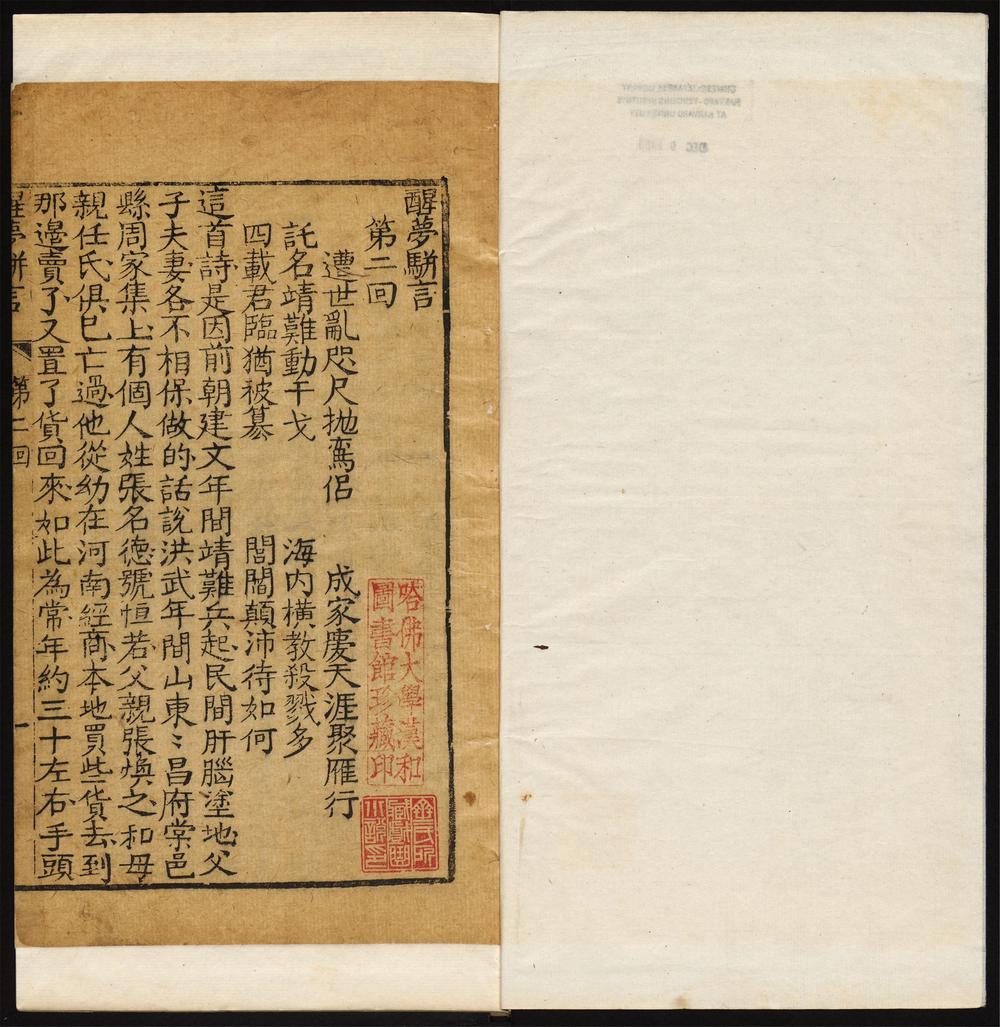 醒夢駢言
第二回
遭世亂咫尺抛鴛侶 成家慶天涯聚雁行
託名靖難動干戈 海内橫教殺戮多
四載君臨猶被簒 閭閻顛沛待如何
這首詩是因前朝建文年間靖難兵起民間肝腦塗地父
子夫妻各不相保做的話說洪武年間山東〻昌府棠邑
縣周家集上有個人姓張名德號恒若父親張煥之和母
親任氏俱已亡過他從幼在河南經商本地買些貨去到
那邉賣了又置了貨回來如此為常年約三十左右手頭
醒夢駢言 第二回 一
哈佛大學漢和
圖書館珍藏印
CHINESE-JAPANESE LIBRARY
HARVARD-YENCHING INSTITUTE
AT HARVARD UNIVERSITY
DEC 9